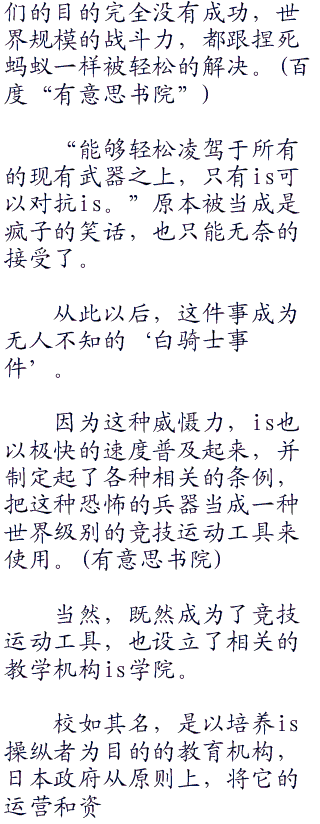 们的目的完全没有成功，世
界规模的战斗力，都跟捏死
蚂蚁一样被轻松的解决。(百
度“有意思书院”)
“能够轻松凌驾于所有
的现有武器之上，只有is可
以对抗is。”原本被当成是
疯子的笑话，也只能无奈的
接受了。
从此以后，这件事成为
无人不知的‘白骑士事
件’。
因为这种威慑力，is也
以极快的速度普及起来，并
制定起了各种相关的条例，
把这种恐怖的兵器当成一种
世界级别的竞技运动工具来
使用。(有意思书院)
当然，既然成为了竞技
运动工具，也设立了相关的
教学机构is学院。
校如其名，是以培养is
操纵者为目的的教育机构，
日本政府从原则上，将它的
运营和资